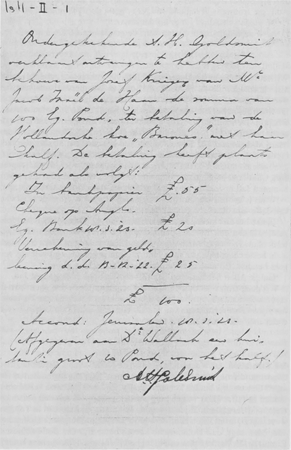 1011-II-1
Ondergetekende A. H. Goldsmit
verklaart ontvangen te hebben ten
behoeve van Josef Krieger van Mr
Jacob Israël de Haan de somma van
100 Eg. Pond, te betaling van de
koe "Baronin" met haar
kalf. De betaling heeft plaats
gehad als volgt:
In bankpapier £. 55
Cheque op Anglo
Eg. Bank £ 20
Verrekening van geld-
leening d.d. 13-12-22. £ 25
£ 100.
Accoord: Jerusalem,
Afgegeven aan Dr Wallach een
groot 10 Pond, voor het kalf!
AHGoldsmid